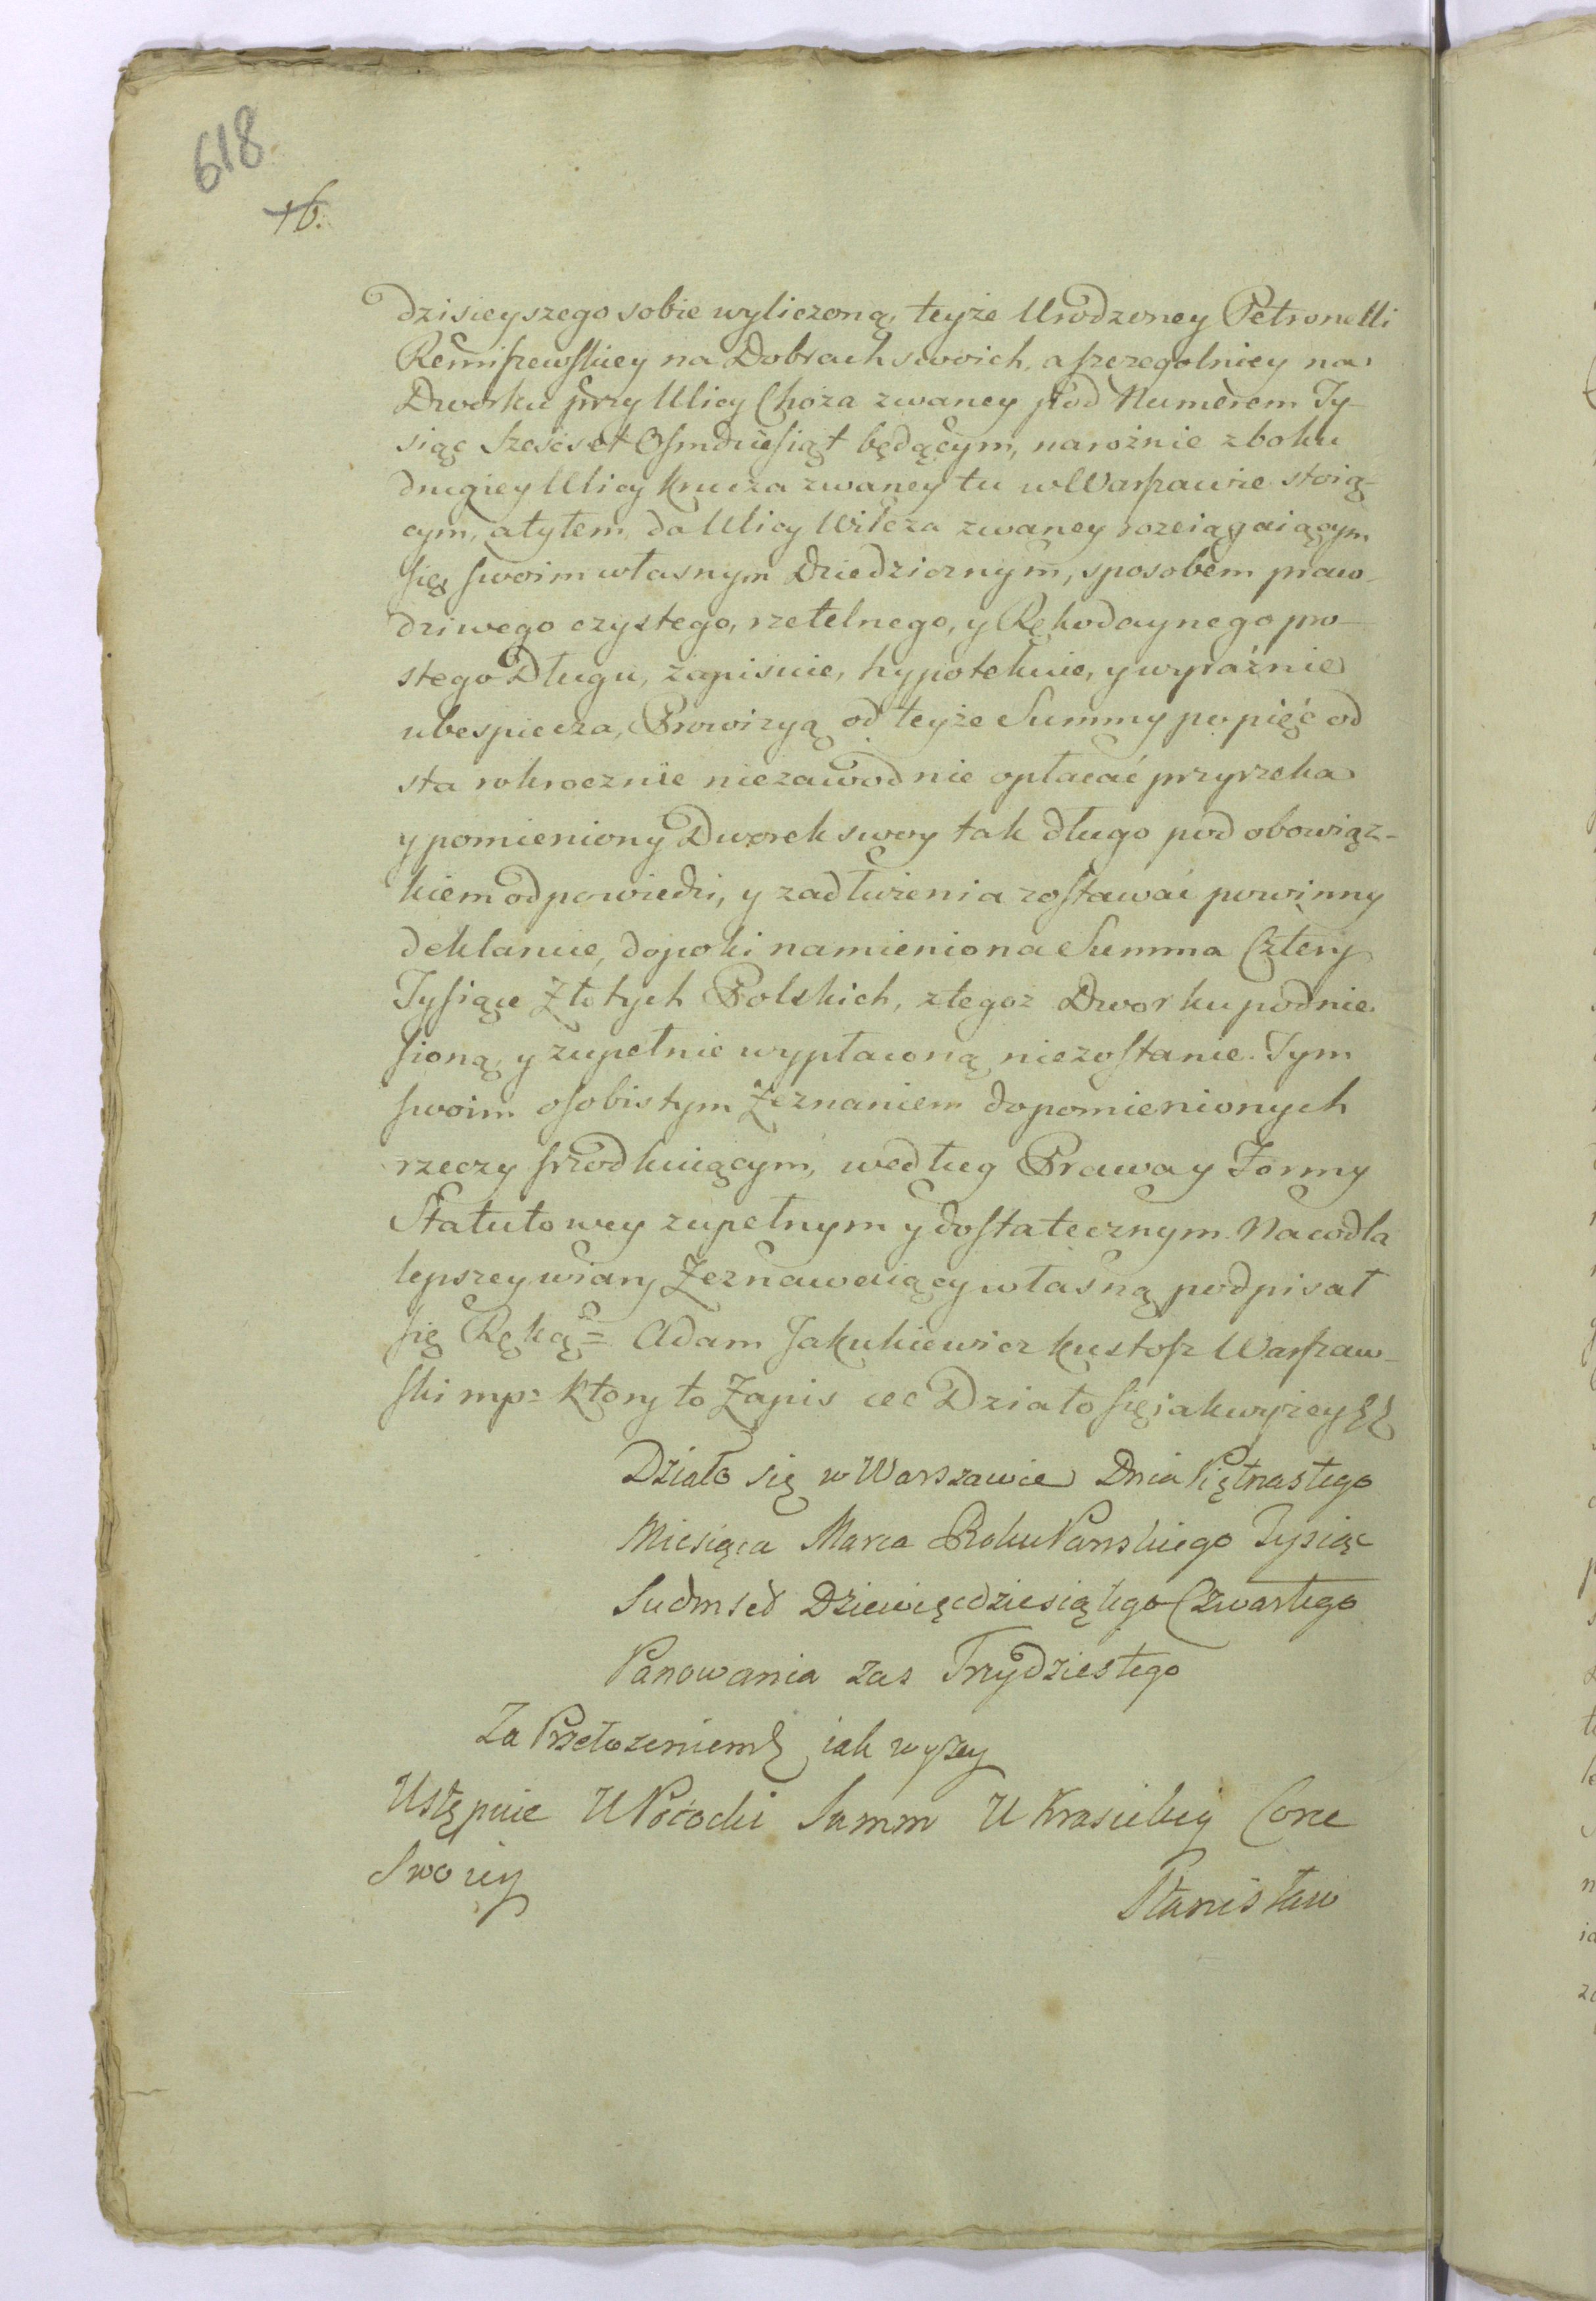 618
16.
dzisieyszego sobie wyliczoną, teyże Urodzoney Petronelli
Remiszewskiey na Dobrach swoich, a szczegolniey na
Dworku przy Ulicy Choża zwaney pod Numerem Ty-
siąc Sześćset Osmdziesiąt będącym, narożnie z boku
drugiey Ulicy Krucza zwaney tu w Warszawie stoią-
cym, a tyłem do Ulicy Wilcza zwaney rozciągaiącym
się swoim własnym Dziedzicznym, sposobem praw-
dziwego czystego, rzetelnego, y Rękodaynego pro-
stego Długu, zapisuie, hypotekuie, y wyraźnie
ubespiecza, Prowizyą od teyże Summy po pięć od
sta rokrocznie niezawodnie opłacać przyrzeka
y pomieniony Dworek swoy tak długo pod obowiąz-
kiem odpowiedzi, y zadłużenia zostawać powinny
deklaruie, dopoki namieniona Summa Cztery
Tysiące Złotych Polskich, z tegoż Dworku podnie
sioną, y zupełnie wypłaconą niezostanie. Tym
swoim osobistym Zeznaniem do pomienionych
rzeczy srzodkuiącym, według Prawa y Formy
Statutowey zupełnym y dostatecznym. Na co dla
lepszey wiary Zeznawaiący własną podpisał
się Ręką = Adam Jakukiewicz kustosz Warszaw-
ski mp: ktory to Zapis etc Działo się iak wyżey
Działo się w Warszawie Dnia Piętnastego
Miesiąca Marca Roku Panskiego Tysiąc
Siedmset Dziewięcdziesiątego Czwartego
Panowania zas Trzydziestego
Za Przełozeniem iak wyzey
Ustępuie U Potocki Summ U Krasickiy Corce
Swoiey
Stanisław